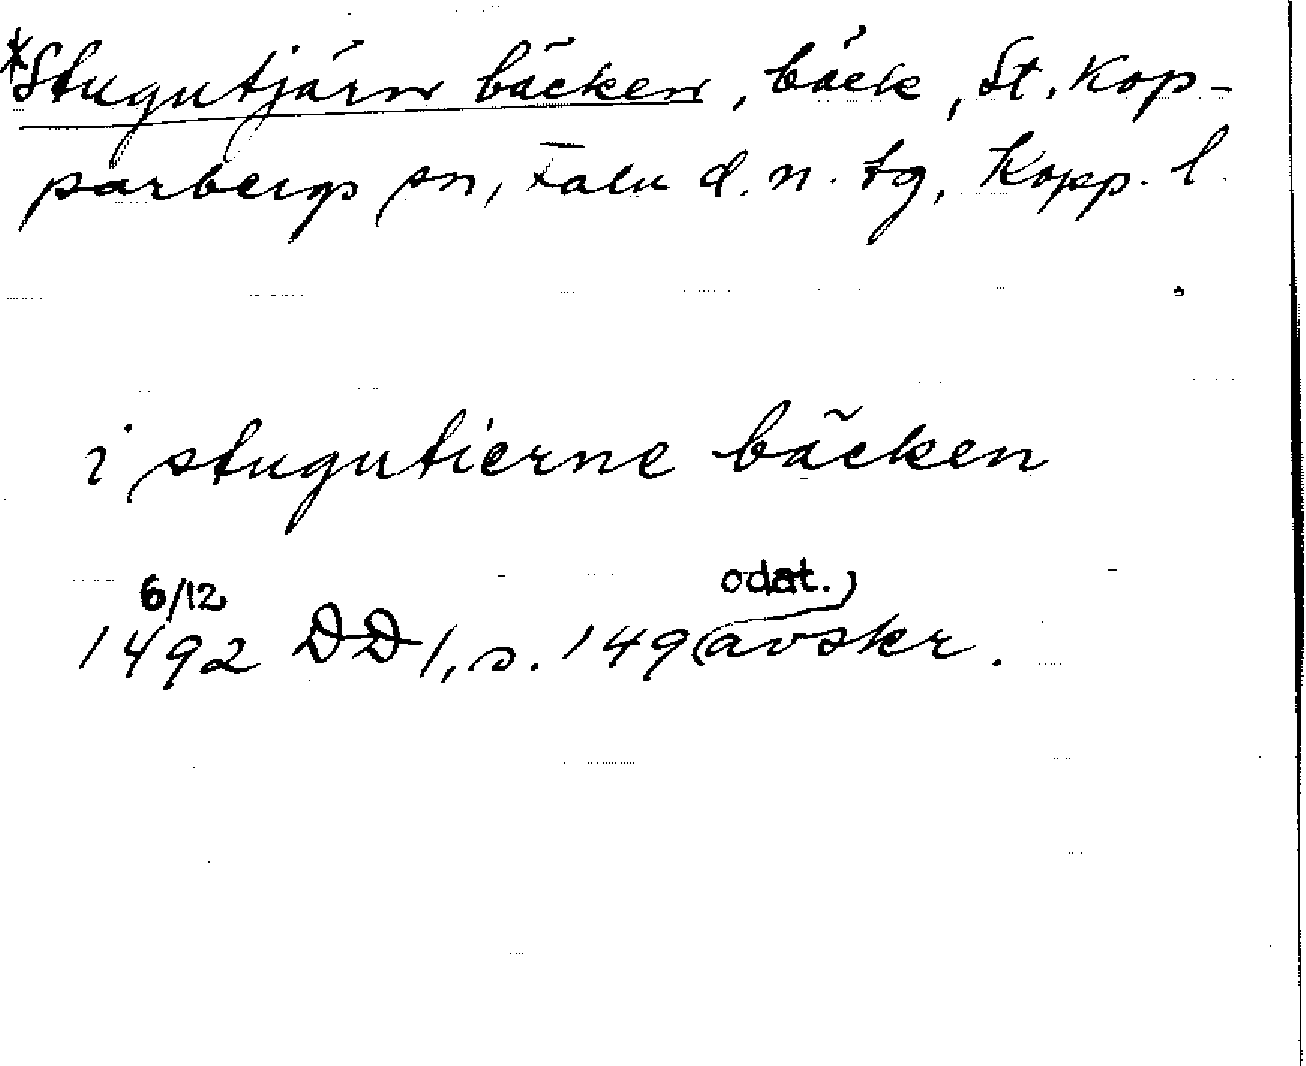 *Stugutjärn bäcken, bäck, St. Kop-
parbergs sn, Falu d. n. tg, Kopp. l.
i stugutierne bäcken
6/12 odat.)
1492 DD 1, s. 149 (avskr.